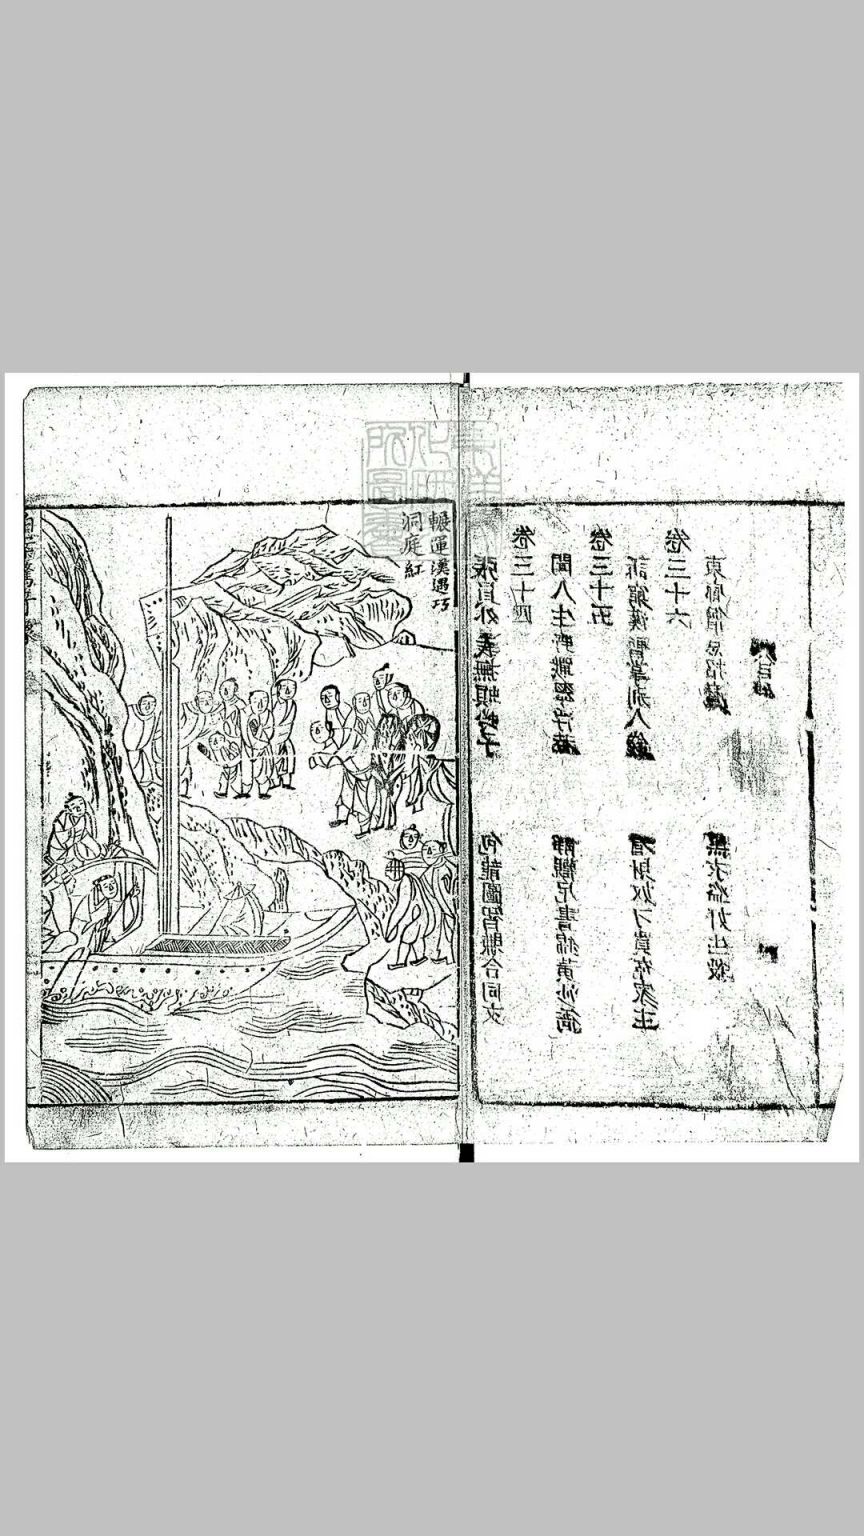 張員外義撫螟蛉子 包龍圖智賺合同文
卷三十四
聞人生野戰翠浮菴 靜觀尼晝錦黃沙衖
卷三十五
訴窮漢暫掌別人錢 看財奴刁買冤家主
卷三十六
東廊僧怠招魔 黑衣盜奸生殺
目錄
轉運漢遇巧
洞庭紅